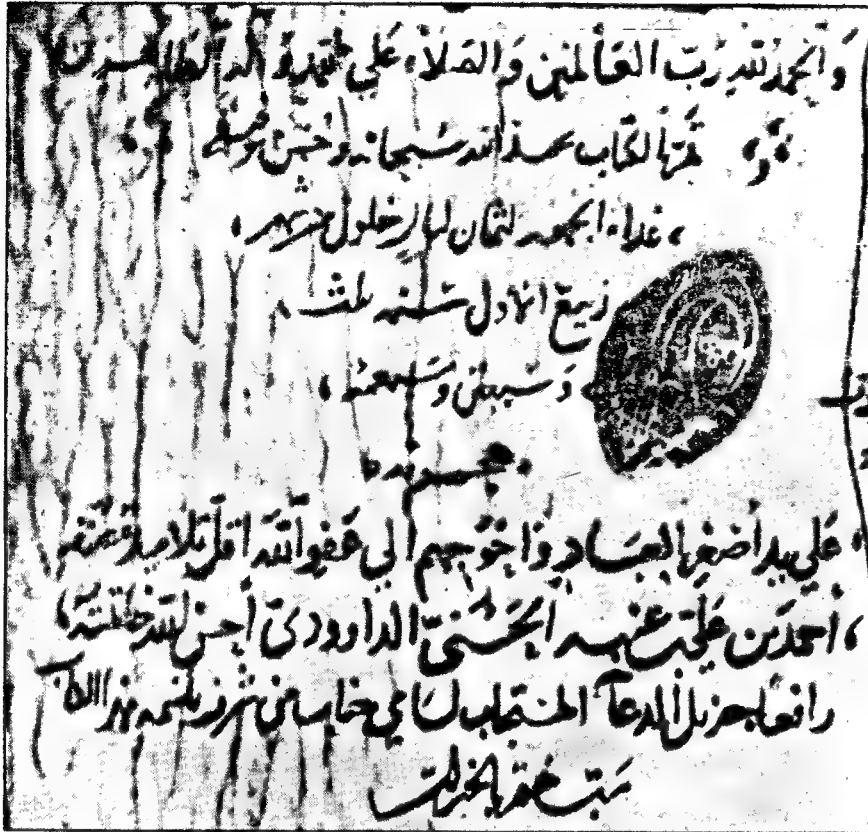 والحمد لله رب العالمين والصلاة على محمد وآله الطاهرين
تم الكتاب بحمد الله سبحانه وحسن توفيقه
غداة الجمعة لثمان ليال خلون من شهر
ربيع الاول سنة ثلث
وسبعين وسبعمئة
هجرية
على يد أضعف العباد وأحوجهم الى عفو الله أقل تلاميذ مصنفه
أحمد بن علي بن عنبه الحسني الداوودي أحسن الله خاتمته
رافعا جزيل الدعاء المستجاب لسامي جناب من شرفه بنسخه هذا الكتاب